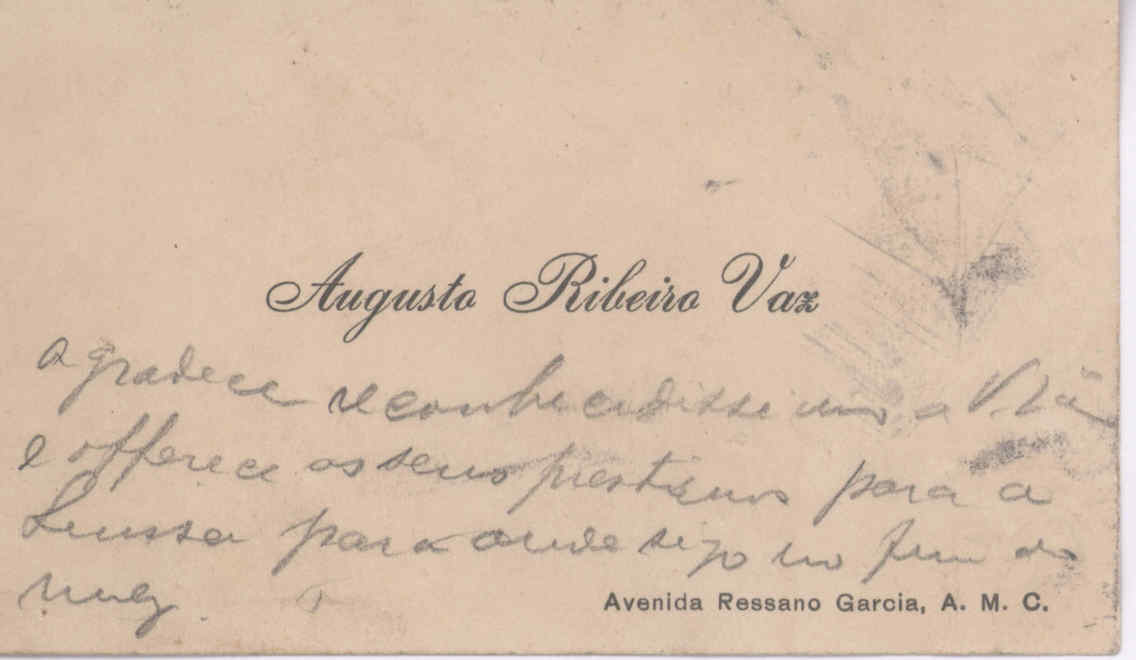 Augusto Ribeiro Vaz
agradece reconhecidissimo a
e offerece os seus prestimos para a
para onde sigo no fim do
mez.
Avenida Ressano Garcia, A. M. C.